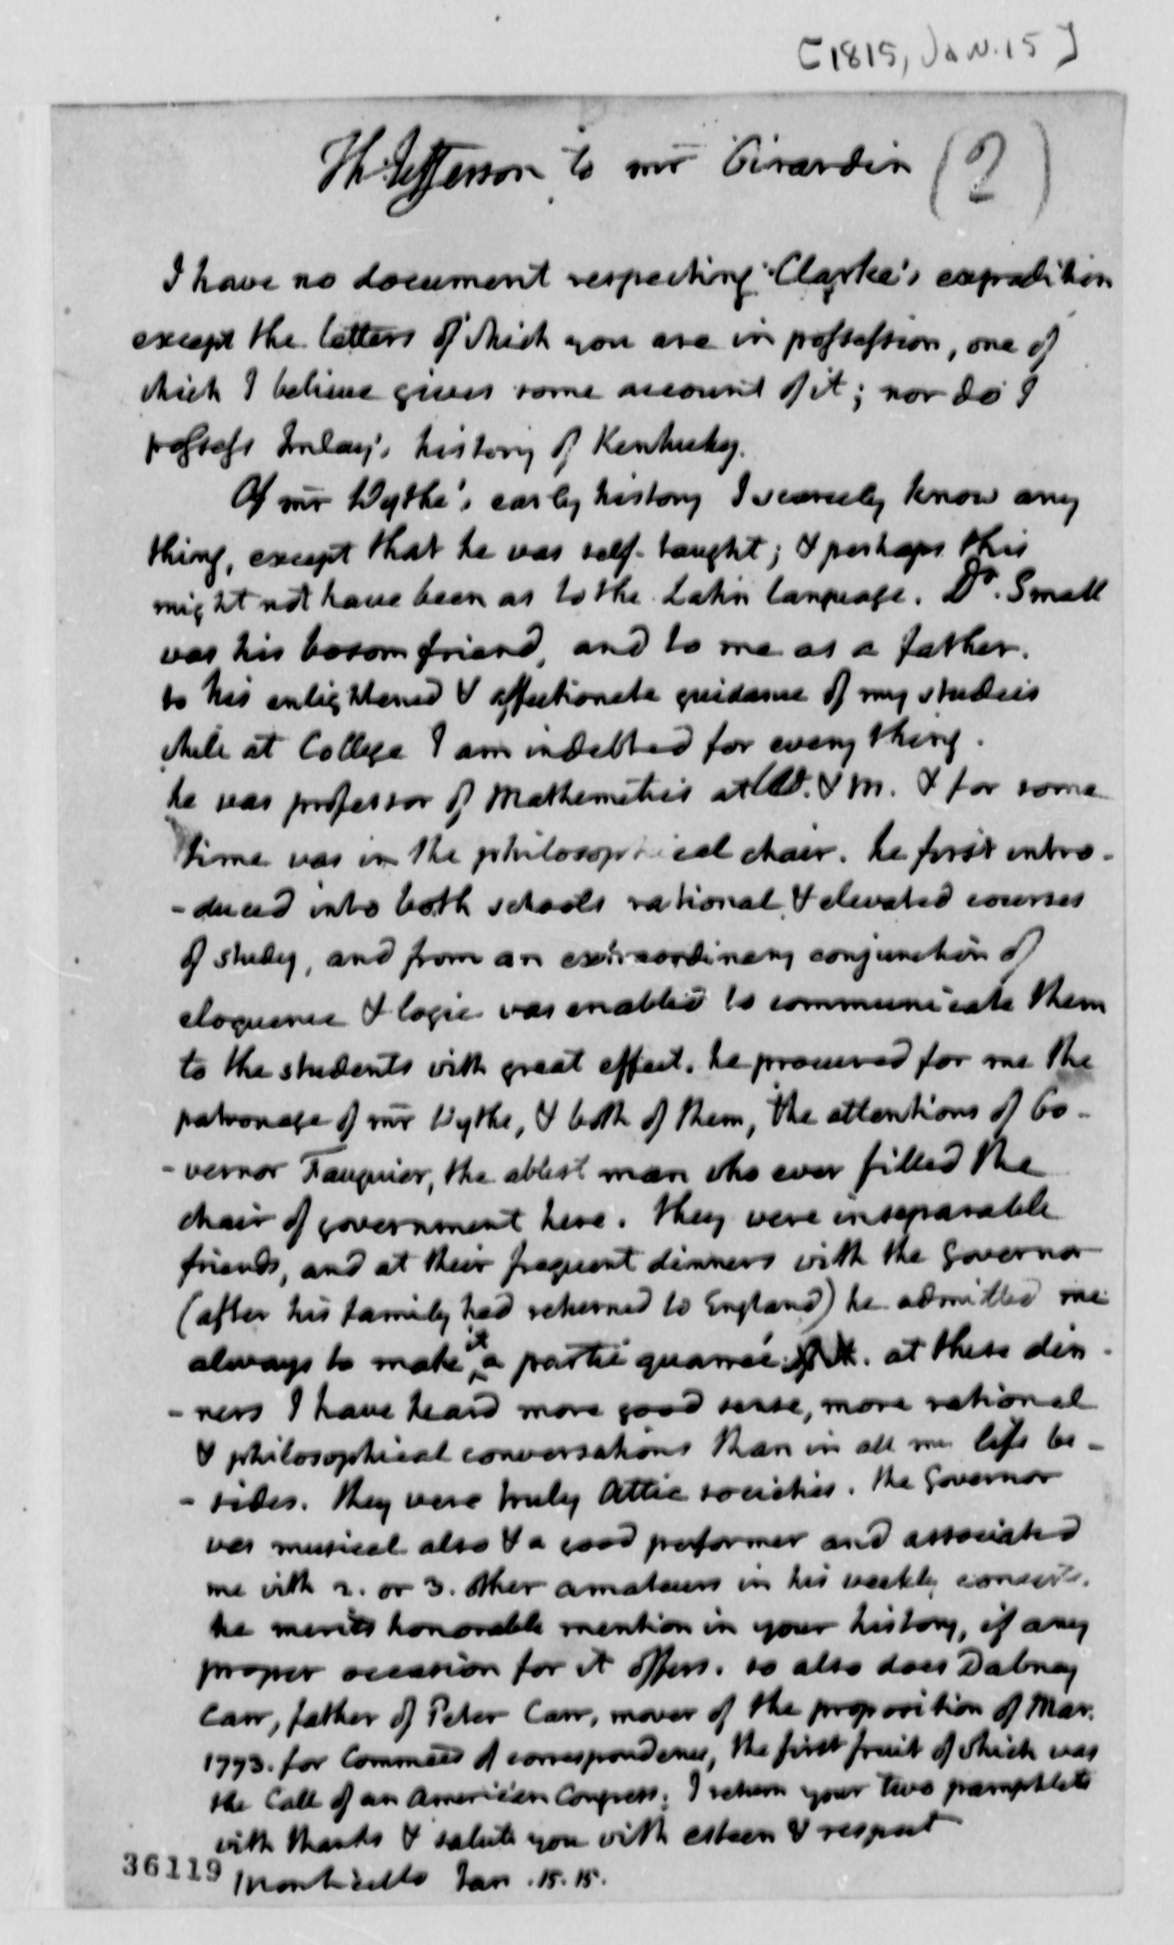 [1815, Jan. 15]
Th: Jefferson to mr Girardin (2)
I have no document respecting Clarke's expedition
except the letters of which you are in possession, one of
which I believe gives some account of it; nor do I
possess Imlay's history of Kentucky.
Of mr Wythe's early history I scarcely know any
thing, except that he was self-taught; & perhaps this
might not have been as to the Latin language. Dr. Small
was his bosom friend, and to me as a father.
to his enlightened & affectionate guidance of my studies
while at College I am indebted for every thing.
he was professor of Mathematics at W. & M. & for some
time was in the philosophical chair. he first intro-
-duced into both schools rational & elevated courses
of study, and from an extraordinary conjunction of
eloquence & logic was enabled to communicate them
to the students with great effect. he procured for me the
patronage of mr Wythe, & both of them, the attentions of Go-
-vernor Fauquier, the ablest man who ever filled the
chair of government here. they were inseparable
friends, and at their frequent dinners with the Governor
(after his family had returned to England) he admitted me
always to make it a partie quarreé. at these din-
-ners I have heard more good sense, more rational
& philosophical conversations than in all my life be-
-sides. they were truly Attic societies. the Governor
was musical also & a good performer and associated
me with 2. or 3. other amateurs in his weekly concerts.
he merits honorable mention in your history, if any
proper occasion for it offers. so also does Dabney
Carr, father of Peter Carr, mover of the proposition of Mar.
1773. for Commees of correspondence, the first fruit of which was
the Call of an American Congress. I return your two pamphlets
with thanks & salute you with esteem & respect
Monticello Jan. 15. 15.
36119